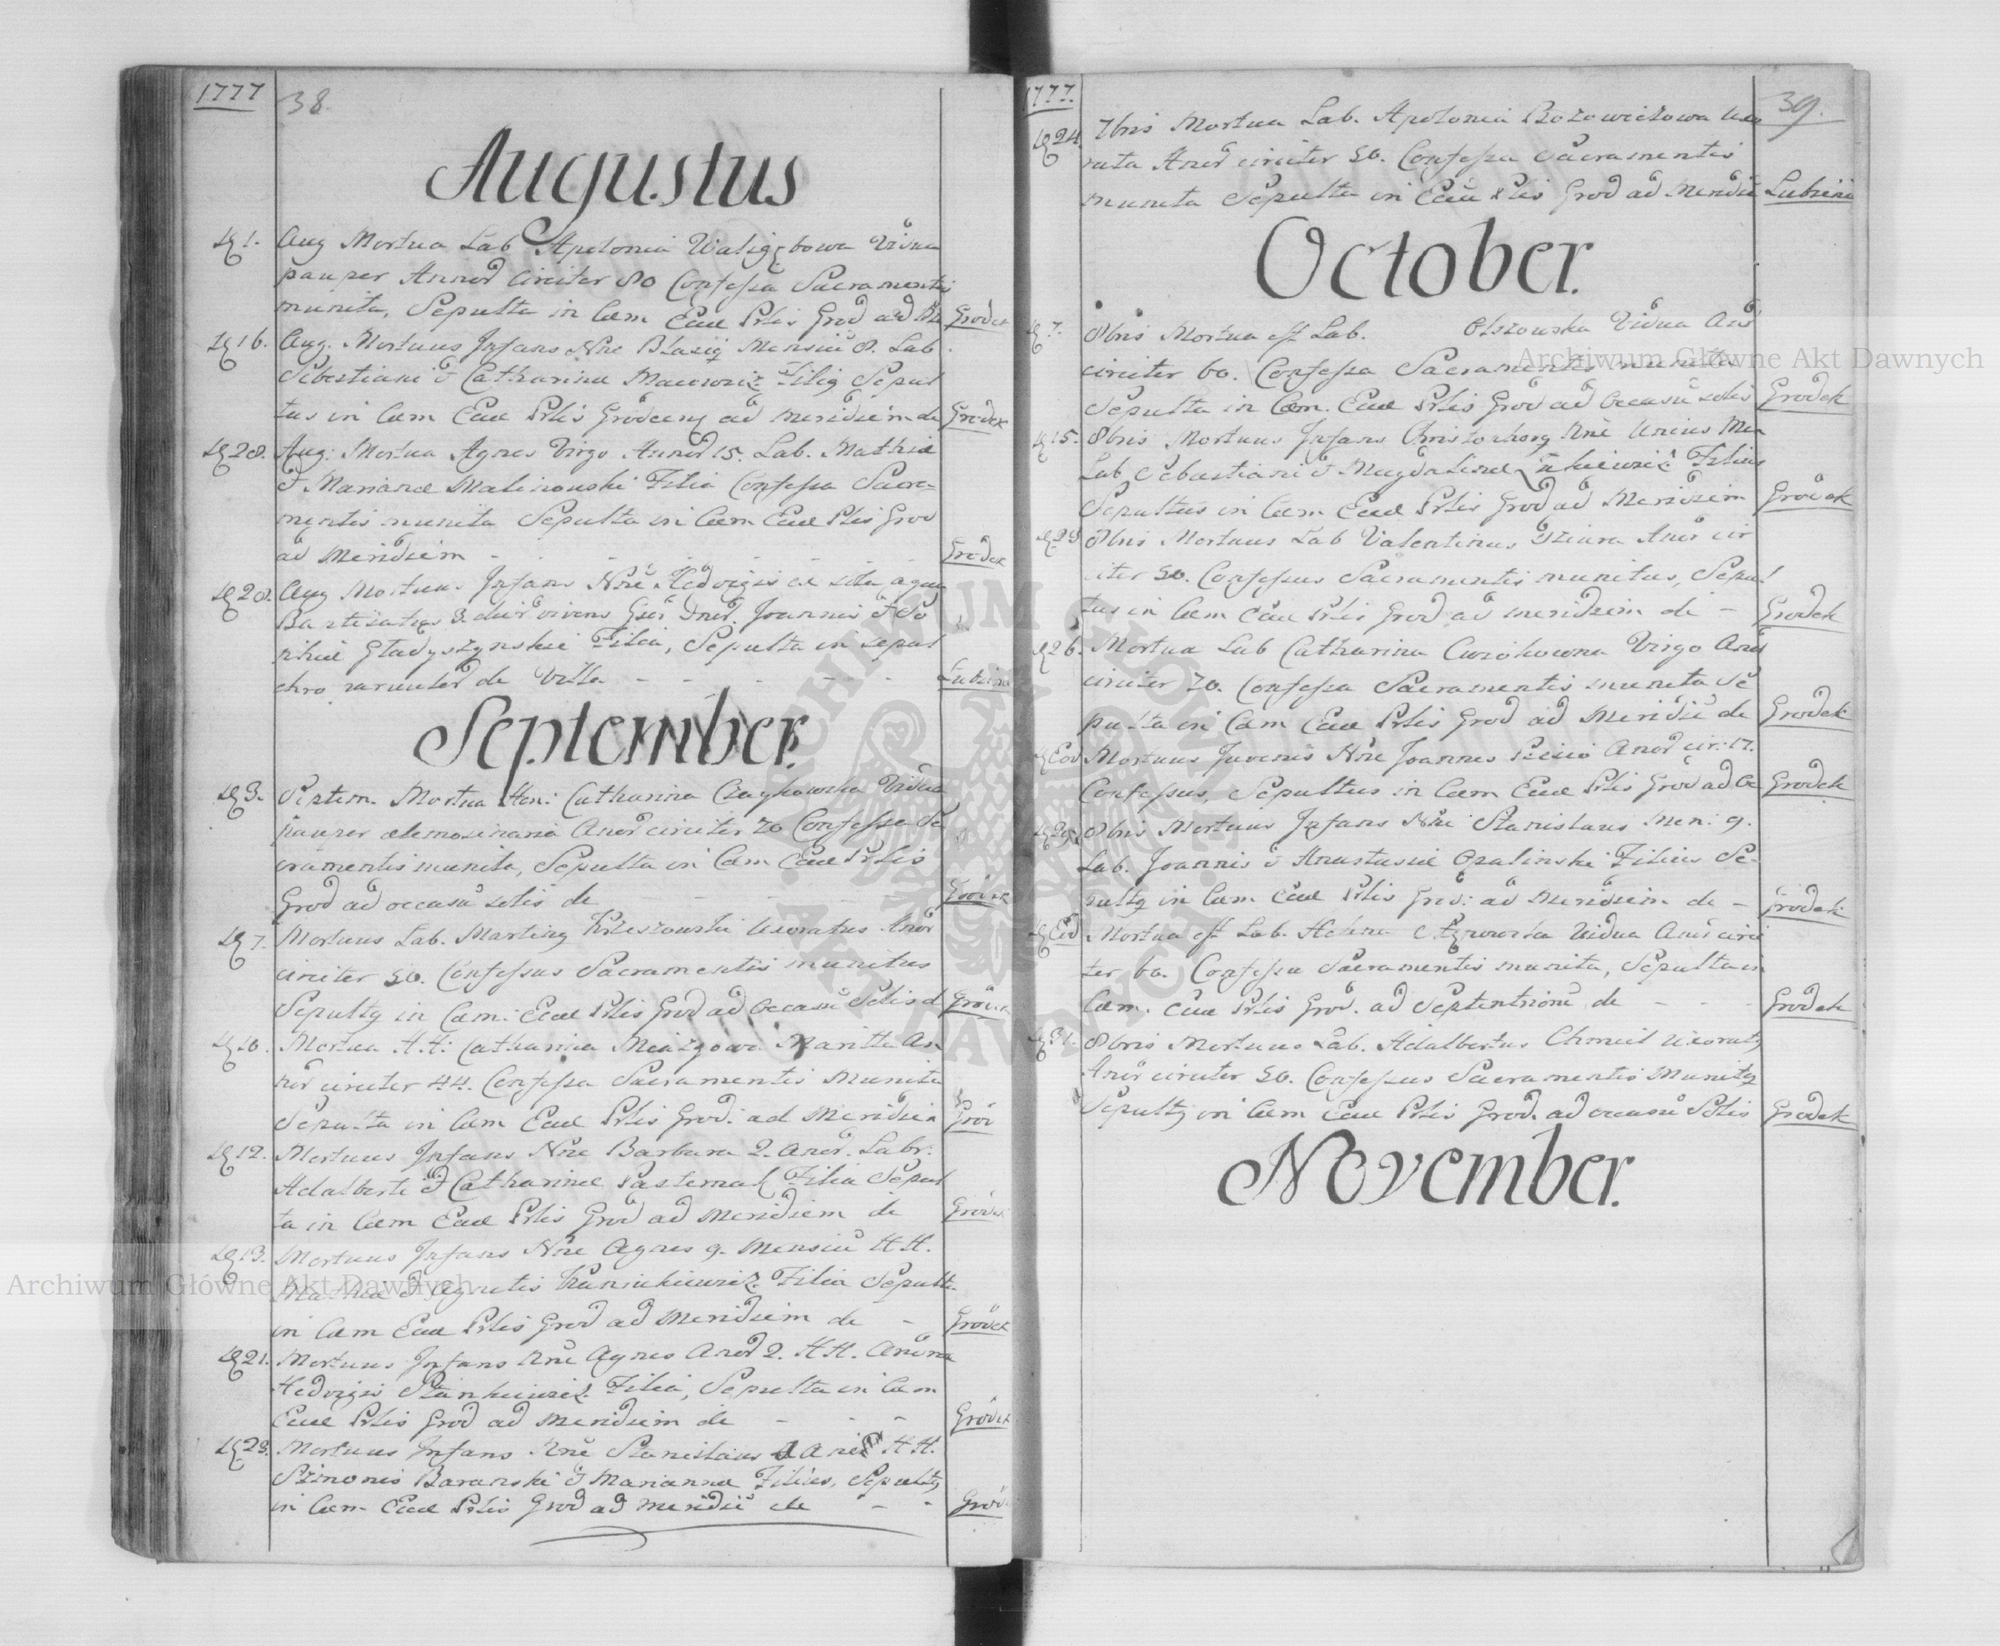 1777
38.
Augustus
1. Aug Mortua Lab Apolonia Waligębowa Vidua
pauper Annor circiter 80 Confessa Sacramentis
munita, Sepulta in Cæm Eccl Prlis Grod ad Grodek
16. Aug. Mortuus Infans Nne Blasiq Mensiu 8. Lab.
Sebestiani & Catharinæ Filiq Sepul
tus in Cæm Eccl Prlis Grodecen ad Meridiem de Grodek
28. Aug: Mortua Agnes Virgo Annor 15. Lab. Mathiæ
& Marianæ Malinowski Filia Confessa Sacra=
mentis munita Sepulta in Cæm Eccl Prlis Grod
ad Meridiem - Grodek
28. Aug Mortuus Infans Nne Hedvigis ex aqua
3 vivens Gsor Dnor. Joannis & So
phiæ Gładyszynskie Filia, Sepulta in sepul
chro de Villa - - - Lubinia
September.
3. Septem. Mortua Hon: Catharina Czaykowska Vidua
pauper elemosinaria Anor circiter 70 Confessa Sa
cramentis munita, Sepulta in Cæm Eccl Prlis
Grod ad occasu solis de Grodek
7. Mortuus Lab. Martinq Uxoratus Anor
circiter 50. Confessus Sacramentis munitus
Sepultq in Cæm: Eccl Prlis Grod ad Occasu Solis d Grodek
10. Mortua H.H: Catharina Miazgowa Maritta An
nor circiter 44. Confessa Sacramentis Munita
Sepulta in Cæm Eccl Prlis Grod: ad Meridiem Grod
12. Mortuus Infans Nne Barbara 2. Anor. Labr:
Adalberti & Catharinæ Pasternak Filia Sepul
ta in Cæm Eccl Prlis Grod ad Meridiem de Grodek
13. Mortuus Infans Nne Agnes 9. Mensiu H.H.
Mathia & Agnetis Filia Sepulta
in Cæm Eccl Prlis Grod ad Meridiem de - Grodek
21. Mortuus Infans Nne Agnes Anor 2. H.H.
Hedvigis Filia, Sepulta in Cæm
Eccl Prlis Grod ad Meridiem de - - - Grodek
23. Mortuus Infans Nne Stanislaus H.H.
Szimonis Baranski & Mariannæ Filius, Sepultq
in Cæm Eccl Prlis Grod ad Meridiu de - - Grod
1777.
39.
24. 7bris Mortua Lab. Apolonia Bozowiczowa Uxo
rata Anor circiter 50. Confessa Sacramentis
munita Sepulta in Eccl Prlis Grod ad Meridiu Lubinia
October.
7. 8bris Mortua est Lab. Olszowska Vidua Anor
circiter 60. Confessa Sacramentis munita
Sepulta in Cæm. Eccl Prlis Grod ad Occasu solis Grodek
15. 8bris Mortuus Infans Christophorq Nne Unius Men
Lab Sebastiani & Magdalenæ Filius
Sepultus in Cæm Eccl Prlis Grod ad Meridiem Grodek
23 8bris Mortuus Lab Valentinus Anor cir
citer 50. Confessus Sacramentis munitus, Sepul
tus in Cæm Eccl Prlis Grod ad meridiem de - Grodek
26. Mortua Lab Catharina Virgo Anor
circiter 70. Confessa Sacramentis munita Se
pulta in Cæm Eccl Prlis Grod ad Meridiu de Grodek
Eod Mortuus Juvenis Nne Joannes Anor cir: 17.
Confessus, Sepultus in Cæm Eccl Prlis Grod ad Oc Grodek
29. 8bris Mortuus Infans Nne Stanislaus Men: 9.
Lab. Joannis & Anastasiæ Opalinski Filius Se=
pultq in Cæm Eccl Prlis Grod: ad Meridiem de - Grodek
Eod Mortua est Lab. Helena Vidua Anor circi
ter 60. Confessa Sacramentis munita, Sepulta in
Cæm. Eccl Prlis Grod. ad Septentrione de - - - Grodek
31. 8bris Mortuus Lab. Adalbertus Chmiel Uxoratq
Anor circiter 50. Confessus Sacramentis Munitq
Sepultq in Cæm Eccl Prlis Grod. ad occasu Solis Grodek
November.
Archiwum Główne Akt Dawnych
Archiwum Główne Akt Dawnych
ARCHIWUM GŁÓWNE AKT DAWNYCH